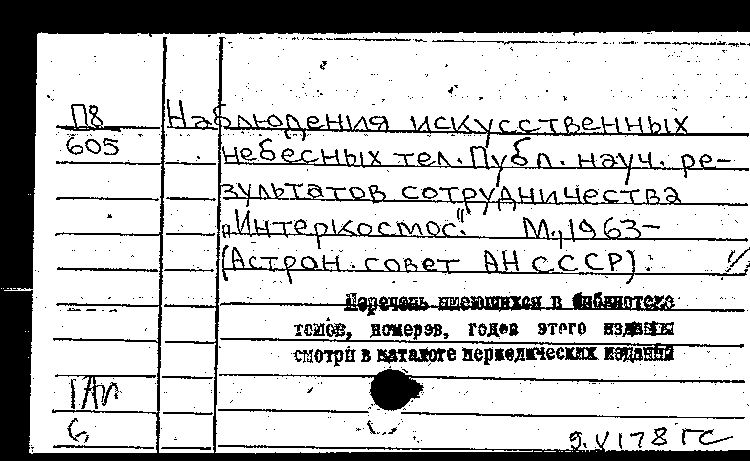 П8
605
Наблюдения искусственных
небесных тел. Публ. науч. ре-
зультатов сотрудничества
„Интеркосмос". М., 1963-
(Астрон. совет АН СССР).
Перечень имеющихся в библиотеке
томов, номеров, годов этого издания
смотри в каталоге периодических изданий
6
9.VI78 ГС